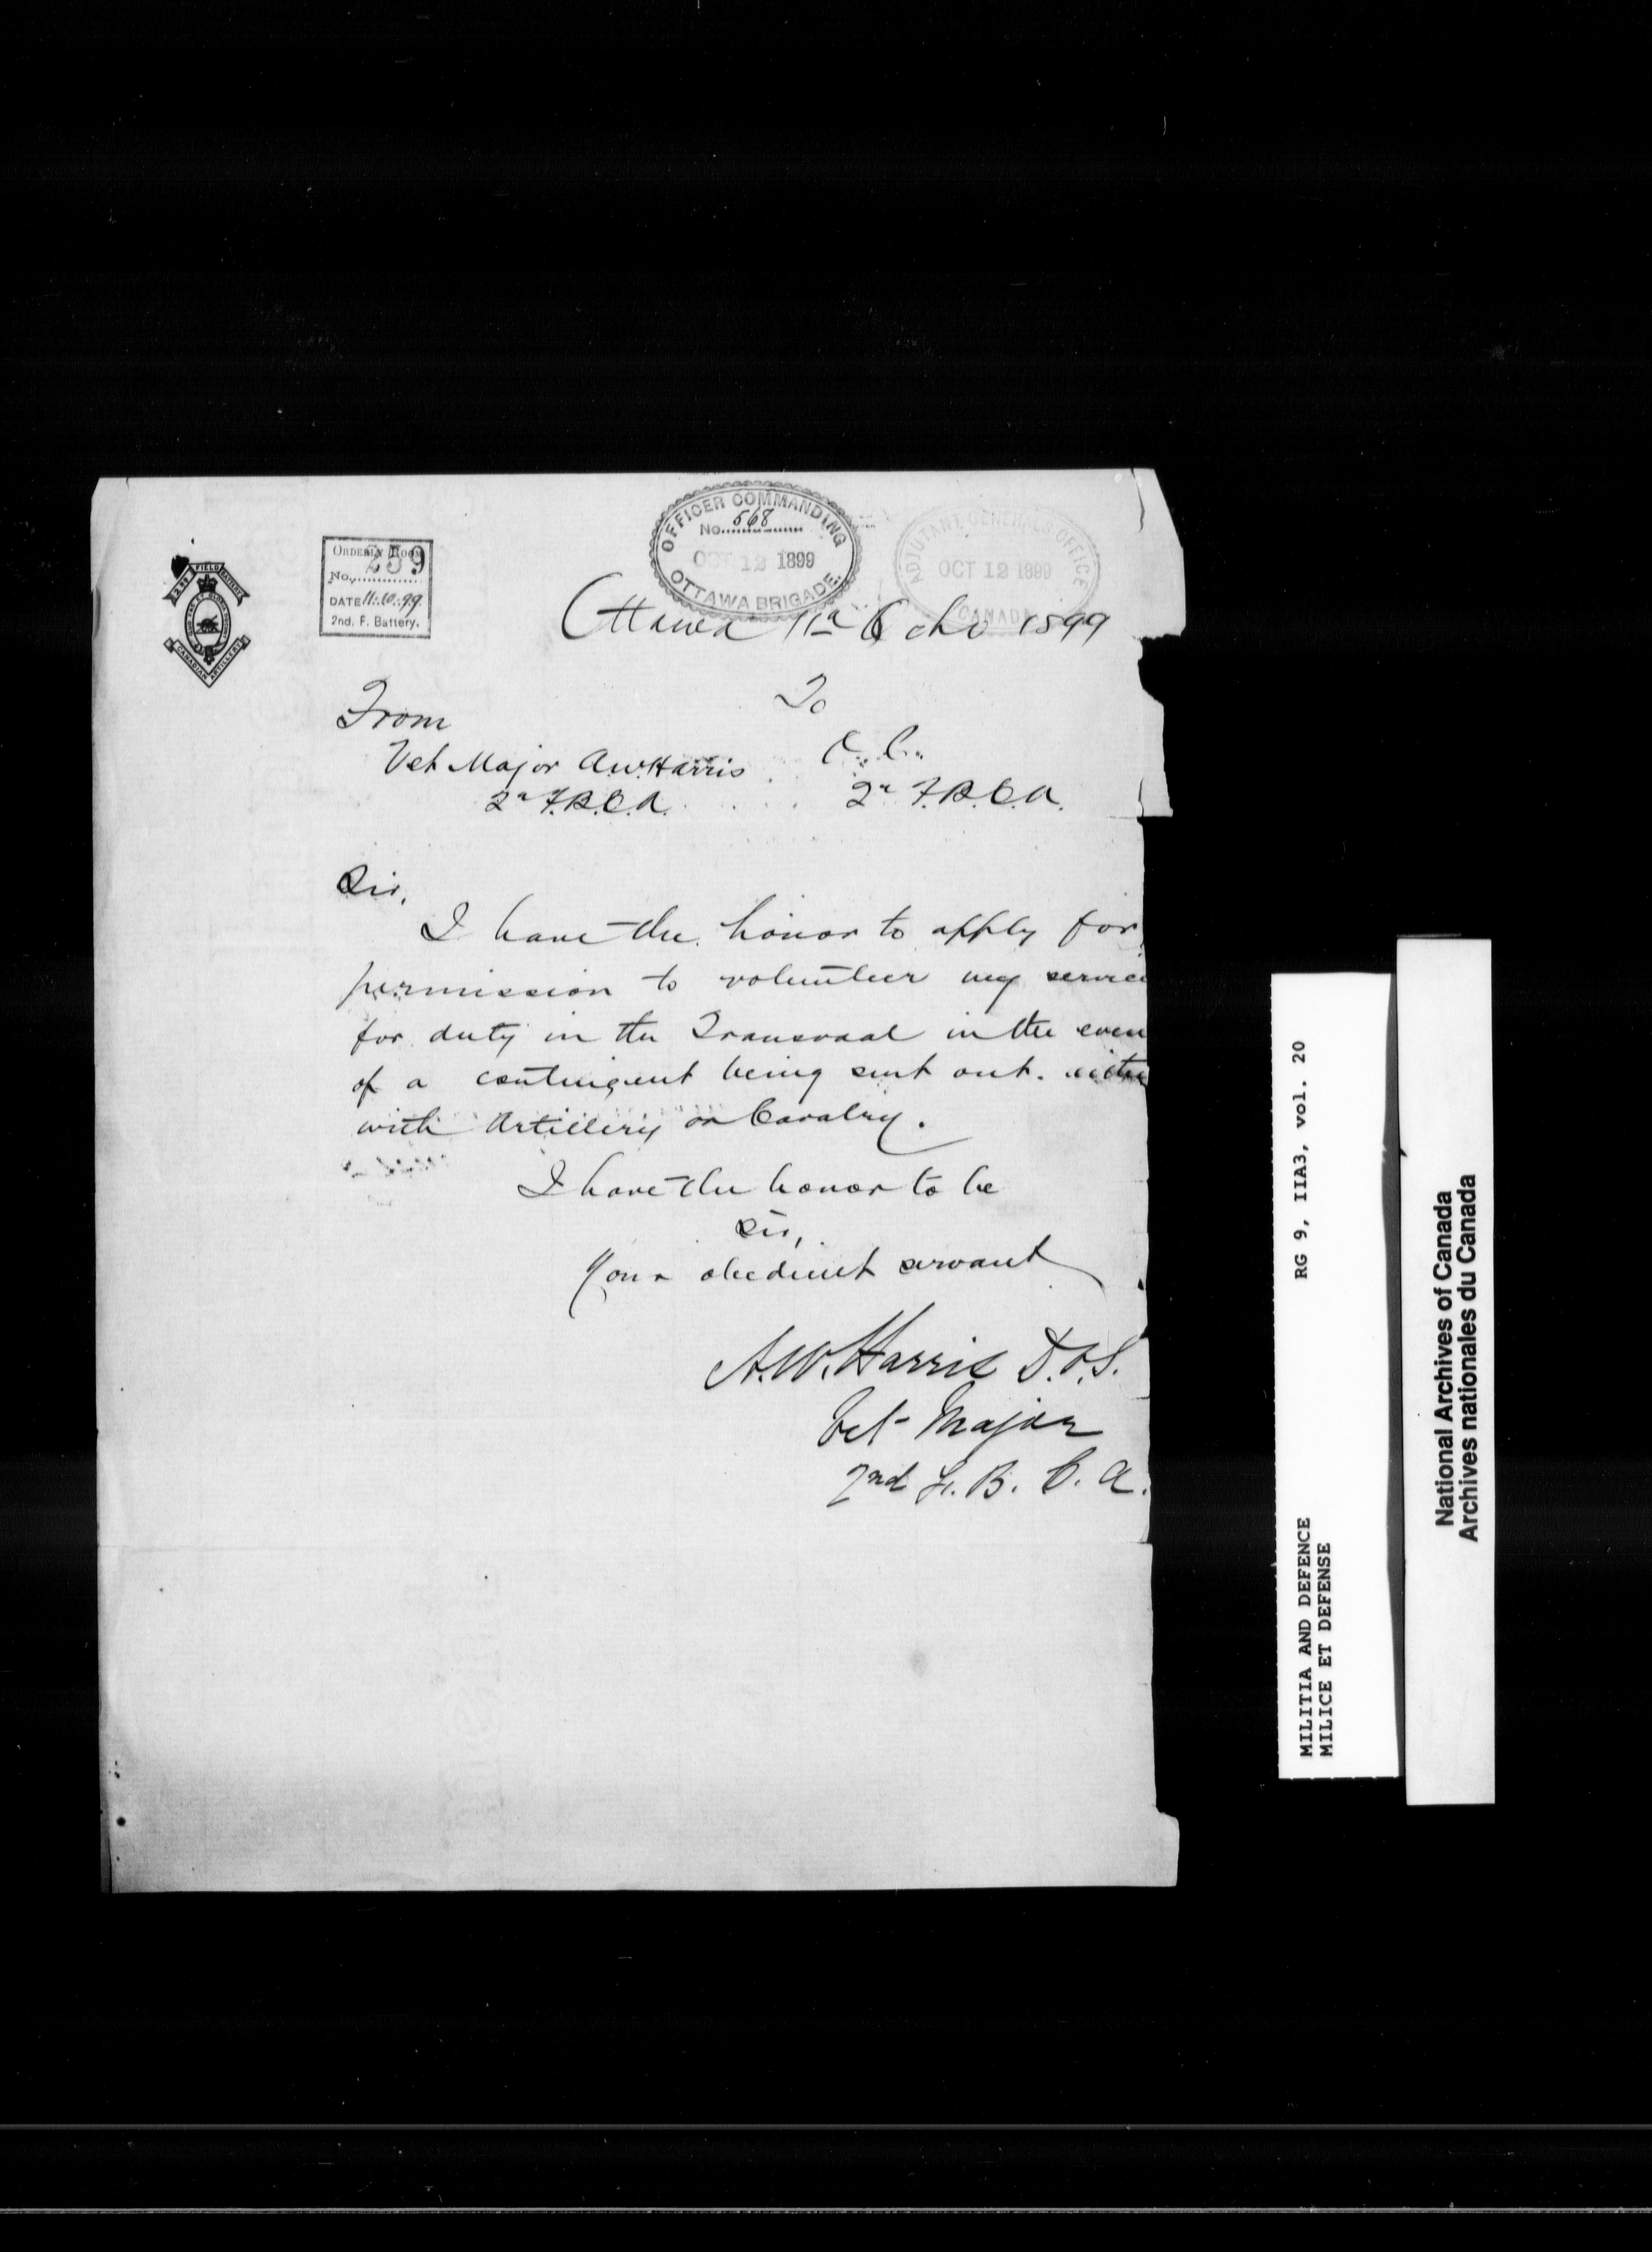 2ND FIELD BATTERY
CANADIAN ARTILLERY
ORDERLY ROOM
No. 259
DATE 11.10.99
2nd. F. Battery.
OFFICER COMMANDING
No. 568
OCT 12 1899
OTTAWA BRIGADE.
ADJUTANT GENERAL'S OFFICE
OCT 12 1899
CANADA
Ottawa 11th Octo 1899
From
To
Vet Major A.W. Harris
O.C.
2n F.B.C.A.
2n F.B.C.A.
Sir,
I have the honor to apply for
permission to volunteer my service
for duty in the Transvaal in the even
of a contingent being sent out. eithe
with Artillery or Cavalry.
I have the honor to be
Sir,
Your obedient servant
A.W. Harris D.V.S.
Vet Major
2nd F. B. C. A.
MILITIA AND DEFENCE RG 9, IIA3, vol. 20
MILICE ET DEFENSE
National Archives of Canada
Archives nationales du Canada